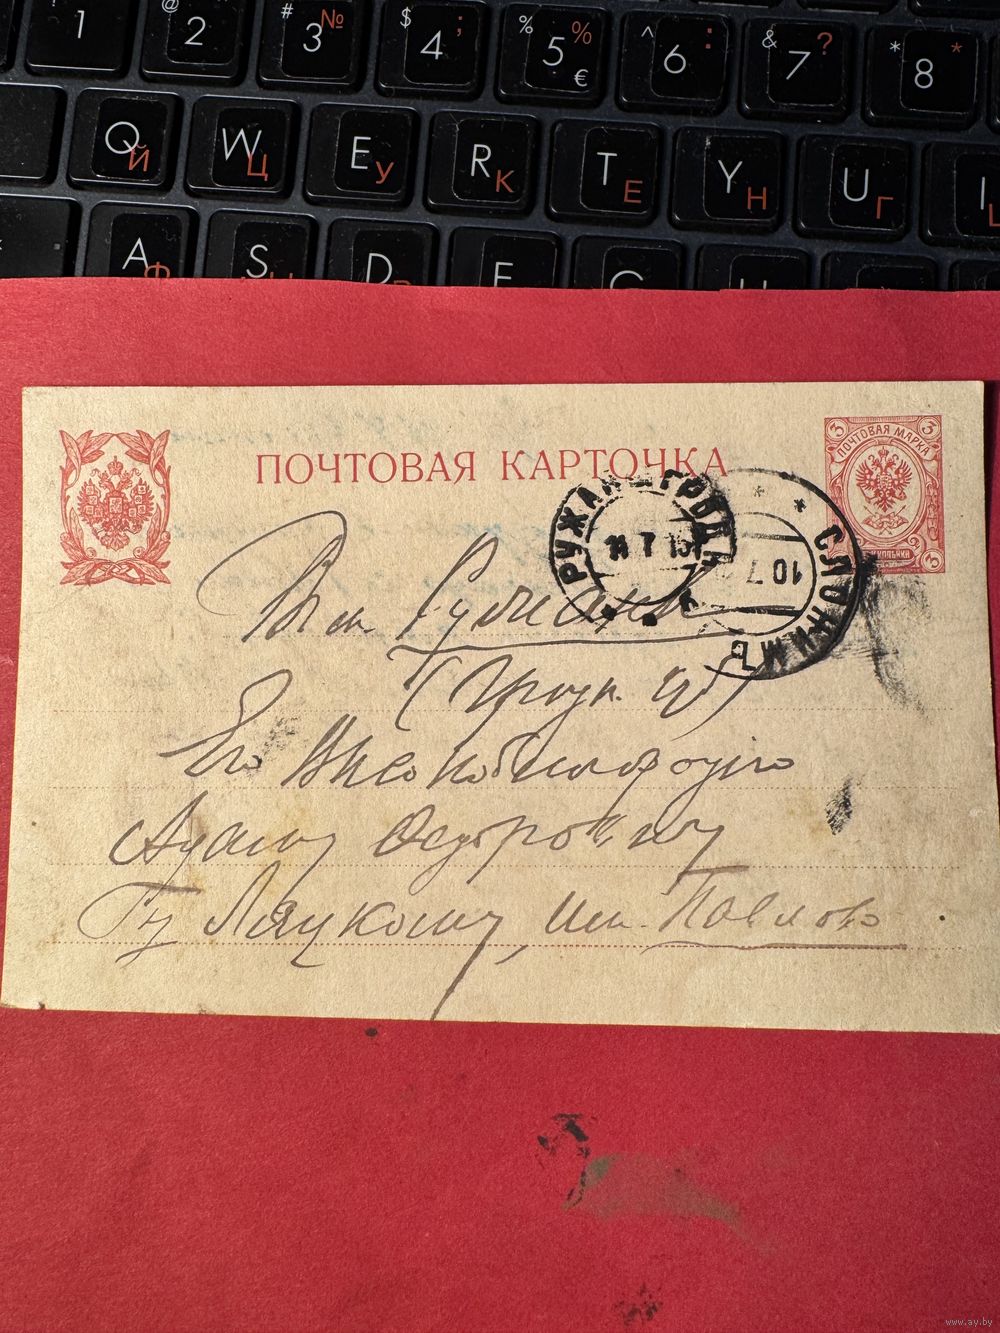 1 @ 2 # 3 № $ 4 ; % 5 % € ^ 6 : & 7 ? * 8 *
Q Й W Ц E У R К T Е Y Н U Г I
A Ф S D F G H
ПОЧТОВАЯ КАРТОЧКА
3 ПОЧТОВАЯ МАРКА 3
3 КОПѢЙКИ 3
РУЖАНЫ ГРОДН.
11 7 15
СЛОНИМЪ
10 7
Вм. Ружаны
(Гродн. г.)
Его Высокоблагородію
Адаму Ѳедоровичу
Гну Ляцкому, им. Павлово
www.ay.by